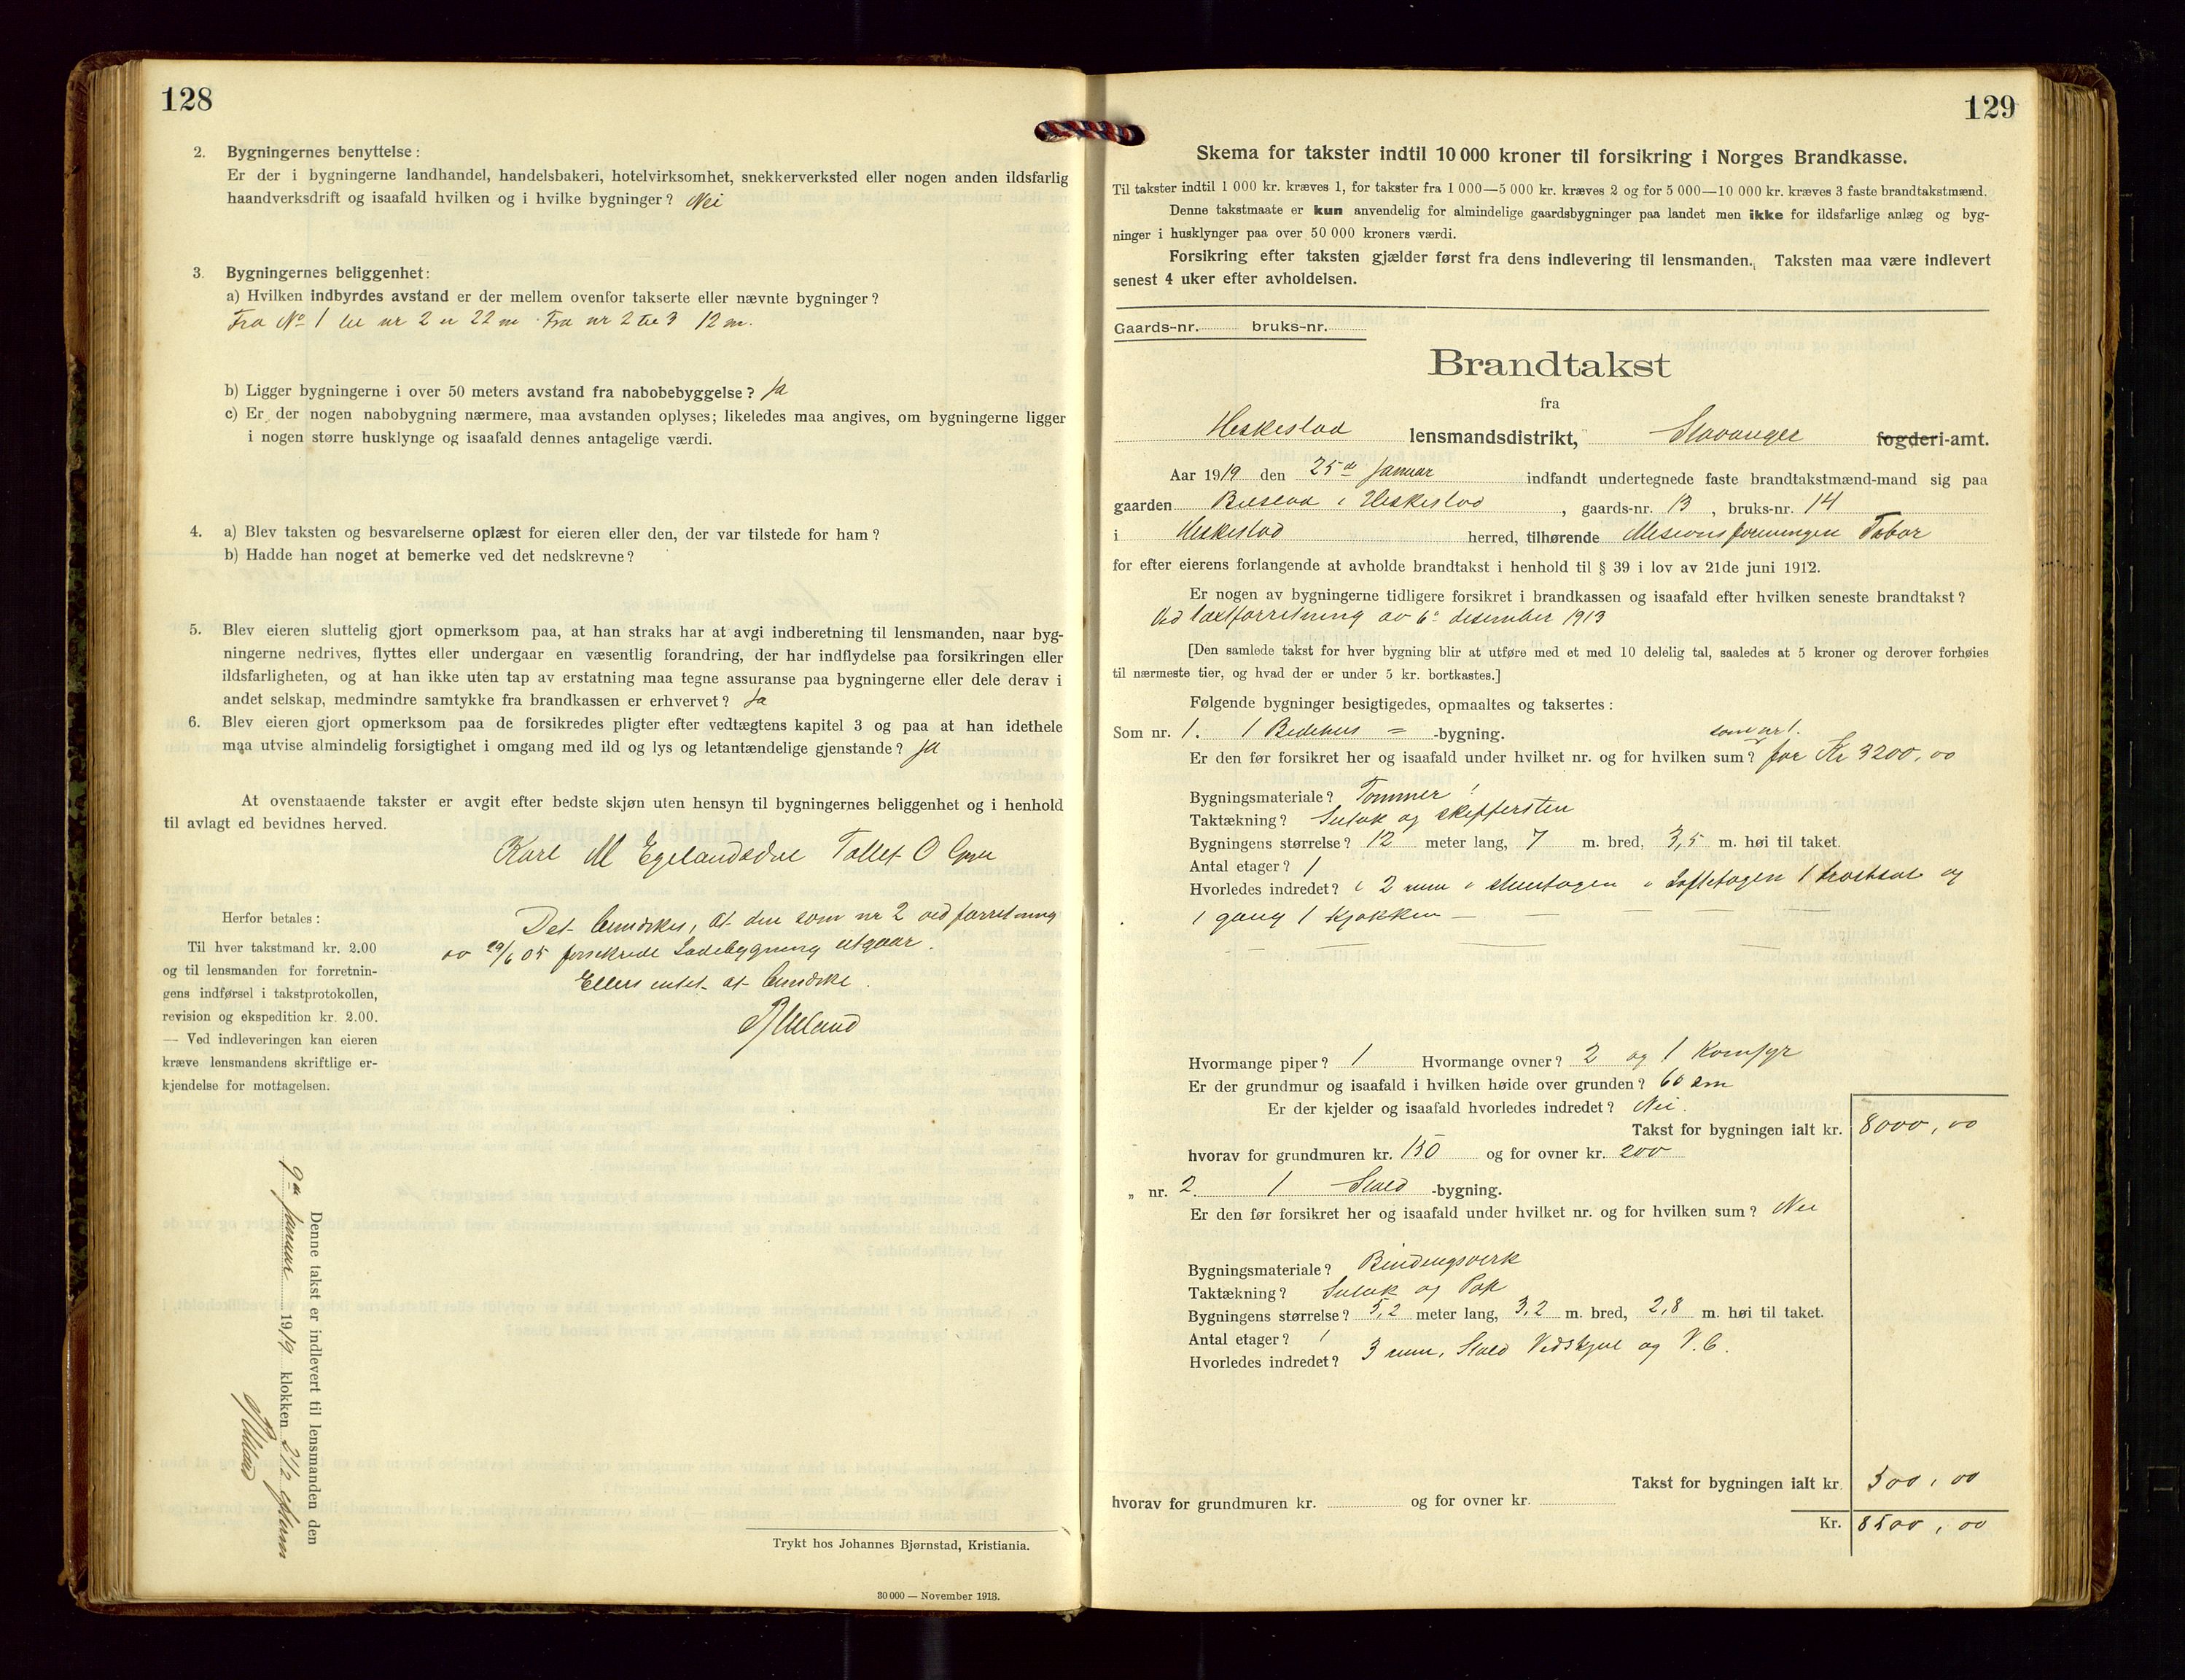 128
2. Bygningernes benyttelse:
Er der i bygningerne landhandel, handelsbakeri, hotelvirksomhet, snekkerverksted eller nogen anden ildsfarlig
haandverksdrift og isaafald hvilken og i hvilke bygninger? Nei
3. Bygningernes beliggenhet:
a) Hvilken indbyrdes avstand er der mellem ovenfor takserte eller nævnte bygninger?
Fra No 1 til nr 2 er 22 m. Fra nr 2 til 3 12 m.
b) Ligger bygningerne i over 50 meters avstand fra nabobebyggelse? Ja
c) Er der nogen nabobygning nærmere, maa avstanden oplyses; likeledes maa angives, om bygningerne ligger
i nogen større husklynge og isaafald dennes antagelige værdi.
4. a) Blev taksten og besvarelserne oplæst for eieren eller den, der var tilstede for ham?
b) Hadde han noget at bemerke ved det nedskrevne?
5. Blev eieren sluttelig gjort opmerksom paa, at han straks har at avgi indberetning til lensmanden, naar byg-
ningerne nedrives, flyttes eller undergaar en væsentlig forandring, der har indflydelse paa forsikringen eller
ildsfarligheten, og at han ikke uten tap av erstatning maa tegne assuranse paa bygningerne eller dele derav i
andet selskap, medmindre samtykke fra brandkassen er erhvervet? Ja
6. Blev eieren gjort opmerksom paa de forsikredes pligter efter vedtægtens kapitel 3 og paa at han idethele
maa utvise almindelig forsigtighet i omgang med ild og lys og letantændelige gjenstande? Ja
At ovenstaaende takster er avgit efter bedste skjøn uten hensyn til bygningernes beliggenhet og i henhold
til avlagt ed bevidnes herved.
Karl M Egelandsdal Tollef O
Det bemerkes, at den som nr 2 ved forretning
av 29/6 05 forsikrede Ladebygning utgaar.
Ellers intet at bemerke.
Herfor betales:
Til hver takstmand kr. 2.00
og til lensmanden for forretnin-
gens indførsel i takstprotokollen,
revision og ekspedition kr. 2.00.
— Ved indleveringen kan eieren
kræve lensmandens skriftlige er-
kjendelse for mottagelsen.
Denne takst er indlevert til lensmanden den
januar 1919 klokken 2 1/2 efterm
Trykt hos Johannes Bjørnstad, Kristiania.
30 000 — November 1913.
129
Skema for takster indtil 10 000 kroner til forsikring i Norges Brandkasse.
Til takster indtil 1 000 kr. kræves 1, for takster fra 1 000—5 000 kr. kræves 2 og for 5 000—10 000 kr. kræves 3 faste brandtakstmænd.
Denne takstmaate er kun anvendelig for almindelige gaardsbygninger paa landet men ikke for ildsfarlige anlæg og byg-
ninger i husklynger paa over 50 000 kroners værdi.
Forsikring efter taksten gjælder først fra dens indlevering til lensmanden. Taksten maa være indlevert
senest 4 uker efter avholdelsen.
Gaards-nr. bruks-nr.
Brandtakst
fra
Heskestad lensmandsdistrikt, Stavanger fogderi-amt.
Aar 1919 den 25de Januar indfandt undertegnede faste brandtakstmænd-mand sig paa
gaarden i Heskestad, gaards-nr. 13, bruks-nr. 14
i Heskestad herred, tilhørende Misionsforeningen Tabor
for efter eierens forlangende at avholde brandtakst i henhold til § 39 i lov av 21de juni 1912.
Er nogen av bygningerne tidligere forsikret i brandkassen og isaafald efter hvilken seneste brandtakst?
Ved taxtforretning av 6e desember 1913
[Den samlede takst for hver bygning blir at utføre med et med 10 delelig tal, saaledes at 5 kroner og derover forhøies
til nærmeste tier, og hvad der er under 5 kr. bortkastes.]
Følgende bygninger besigtigedes, opmaaltes og taksertes:
Som nr. 1. 1 Bedehus = -bygning.
som nr 1.
Er den før forsikret her og isaafald under hvilket nr. og for hvilken sum? for Kr 3200,00
Bygningsmateriale? Tømmer
Taktækning? Sutak og skiffersten
Bygningens størrelse? 12 meter lang, 7 m. bred, 3,5 m. høi til taket.
Antal etager? 1
Hvorledes indredet? i 2 rum i i Loftetagen 1 og
1 gang 1 Kjøkken —
Hvormange piper? 1 Hvormange ovner? 2 og 1 Komfyr
Er der grundmur og isaafald i hvilken høide over grunden? 60 cm
Er der kjelder og isaafald hvorledes indredet? Nei.
Takst for bygningen ialt kr. 8000,00
hvorav for grundmuren kr. 150 og for ovner kr. 200
„ nr. 2 1 Stald -bygning.
Er den før forsikret her og isaafald under hvilket nr. og for hvilken sum? Nei
Bygningsmateriale? Bindingsverk
Taktækning? Sutak og Pap
Bygningens størrelse? 5,2 meter lang, 3,2 m. bred, 2,8 m. høi til taket.
Antal etager? 1
Hvorledes indredet? 3 rum, Stald Vedskjul og V.C.
Takst for bygningen ialt kr. 500,00
hvorav for grundmuren kr. og for ovner kr.
Kr. 8500,00